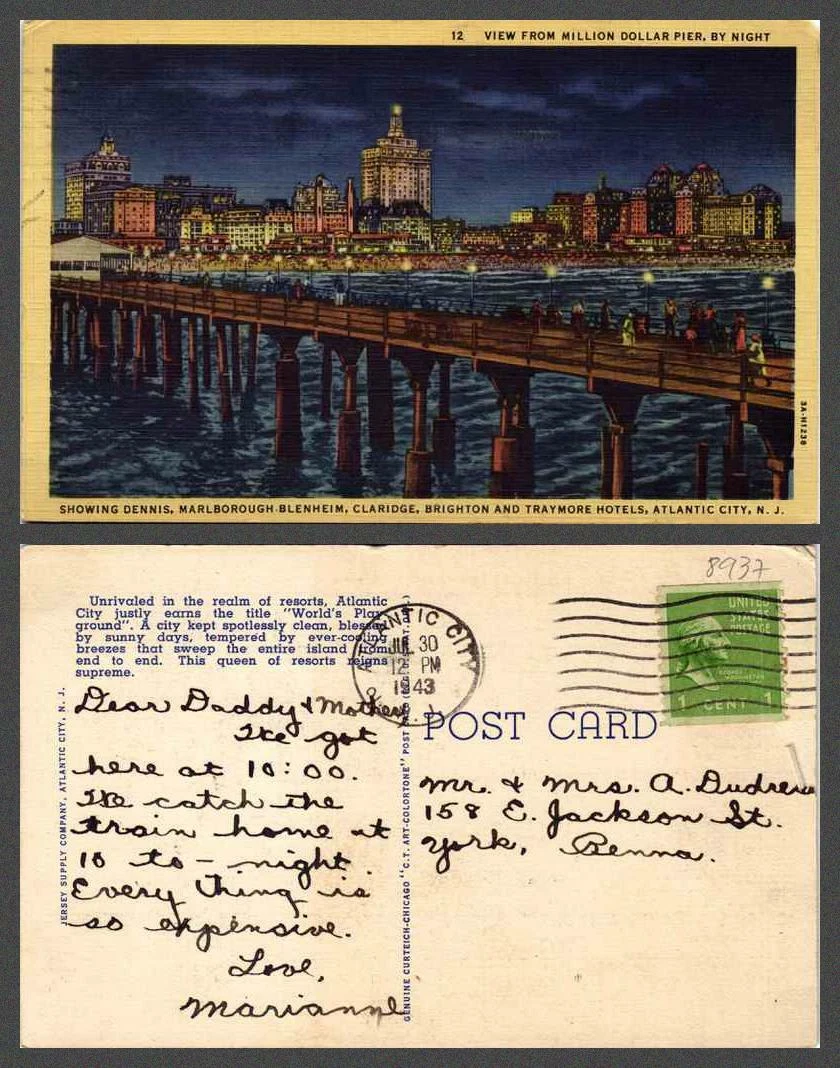 12 VIEW FROM MILLION DOLLAR PIER, BY NIGHT
3A-H1238
SHOWING DENNIS, MARLBOROUGH-BLENHEIM, CLARIDGE, BRIGHTON AND TRAYMORE HOTELS, ATLANTIC CITY, N. J.
8937
Unrivaled in the realm of resorts, Atlantic
City justly earns the title "World's Play-
ground". A city kept spotlessly clean, blessed
by sunny days, tempered by ever-cooling
breezes that sweep the entire island from
end to end. This queen of resorts reigns
supreme.
ATLANTIC CITY
JUL 30
12 PM
1943
UNITED
STATES
POSTAGE
GEORGE
WASHINGTON
1 CENT 1
POST CARD
JERSEY SUPPLY COMPANY, ATLANTIC CITY, N. J.
Dear Daddy & Mother
We got
here at 10:00.
We catch the
train home at
10 to-night.
Every thing is
so expensive.
Love,
Marianne
GENUINE CURTEICH-CHICAGO "C.T. ART-COLORTONE" POST
Mr. & Mrs. A.
158 E. Jackson St.
York, Penna.